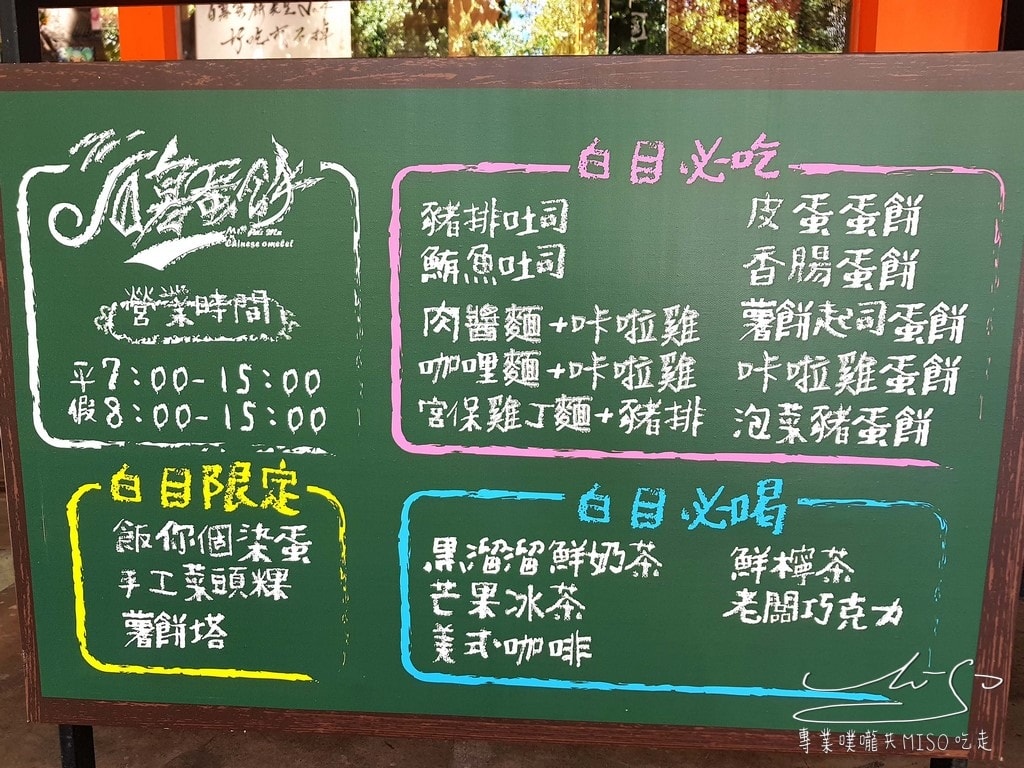 蛋餅
Chinese omelet
營業時間
平7:00-15:00
假8:00-15:00
白目限定
飯你個染蛋
手工菜頭粿
薯餅塔
白目必吃
豬排吐司
鮪魚吐司
肉醬麵+咔啦雞
咖哩麵+咔啦雞
宮保雞丁麵+豬排
皮蛋蛋餅
香腸蛋餅
薯餅起司蛋餅
咔啦雞蛋餅
泡菜豬蛋餅
白目必喝
黑溜溜鮮奶茶
芒果冰茶
美式咖啡
鮮檸茶
老闆巧克力
專業噗嚨共MISO吃走